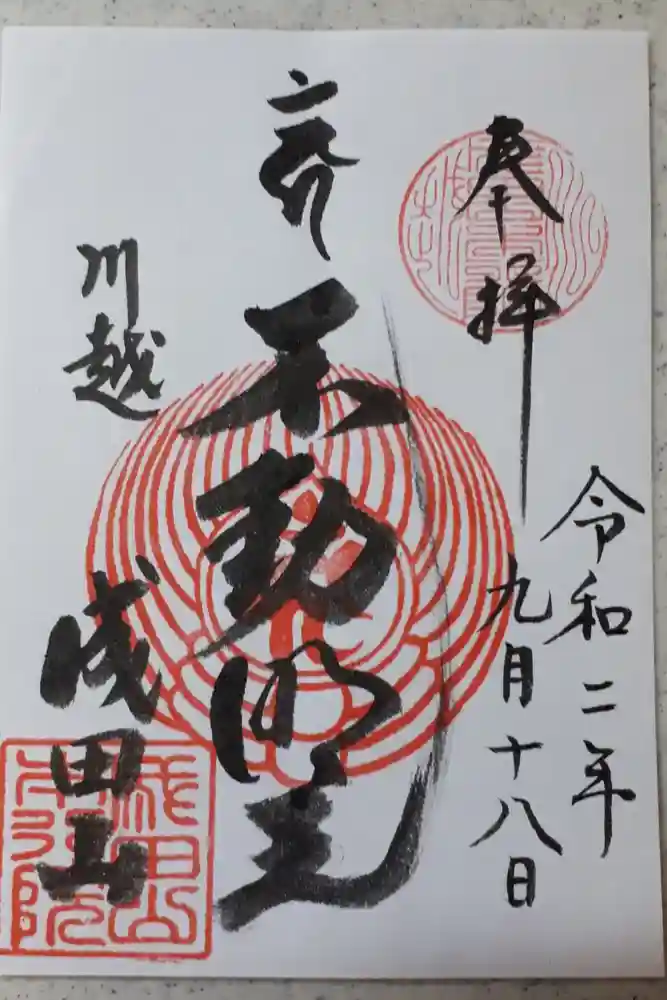 奉拝
令和二年
九月十八日
不動明王
川越
成田山
成田山
本行院